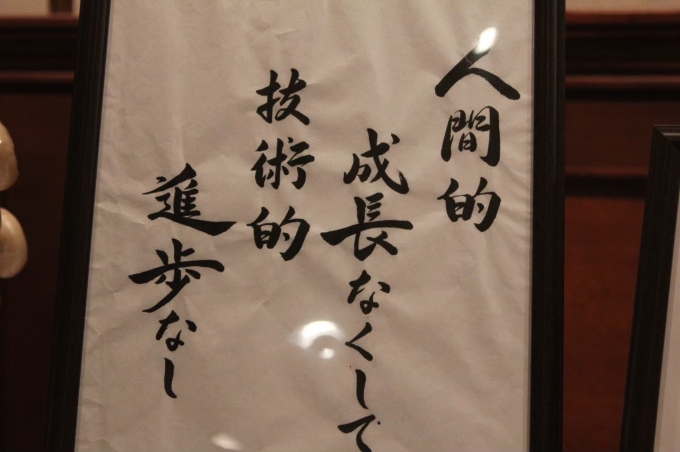 人間的
成長なくして
技術的
進歩なし